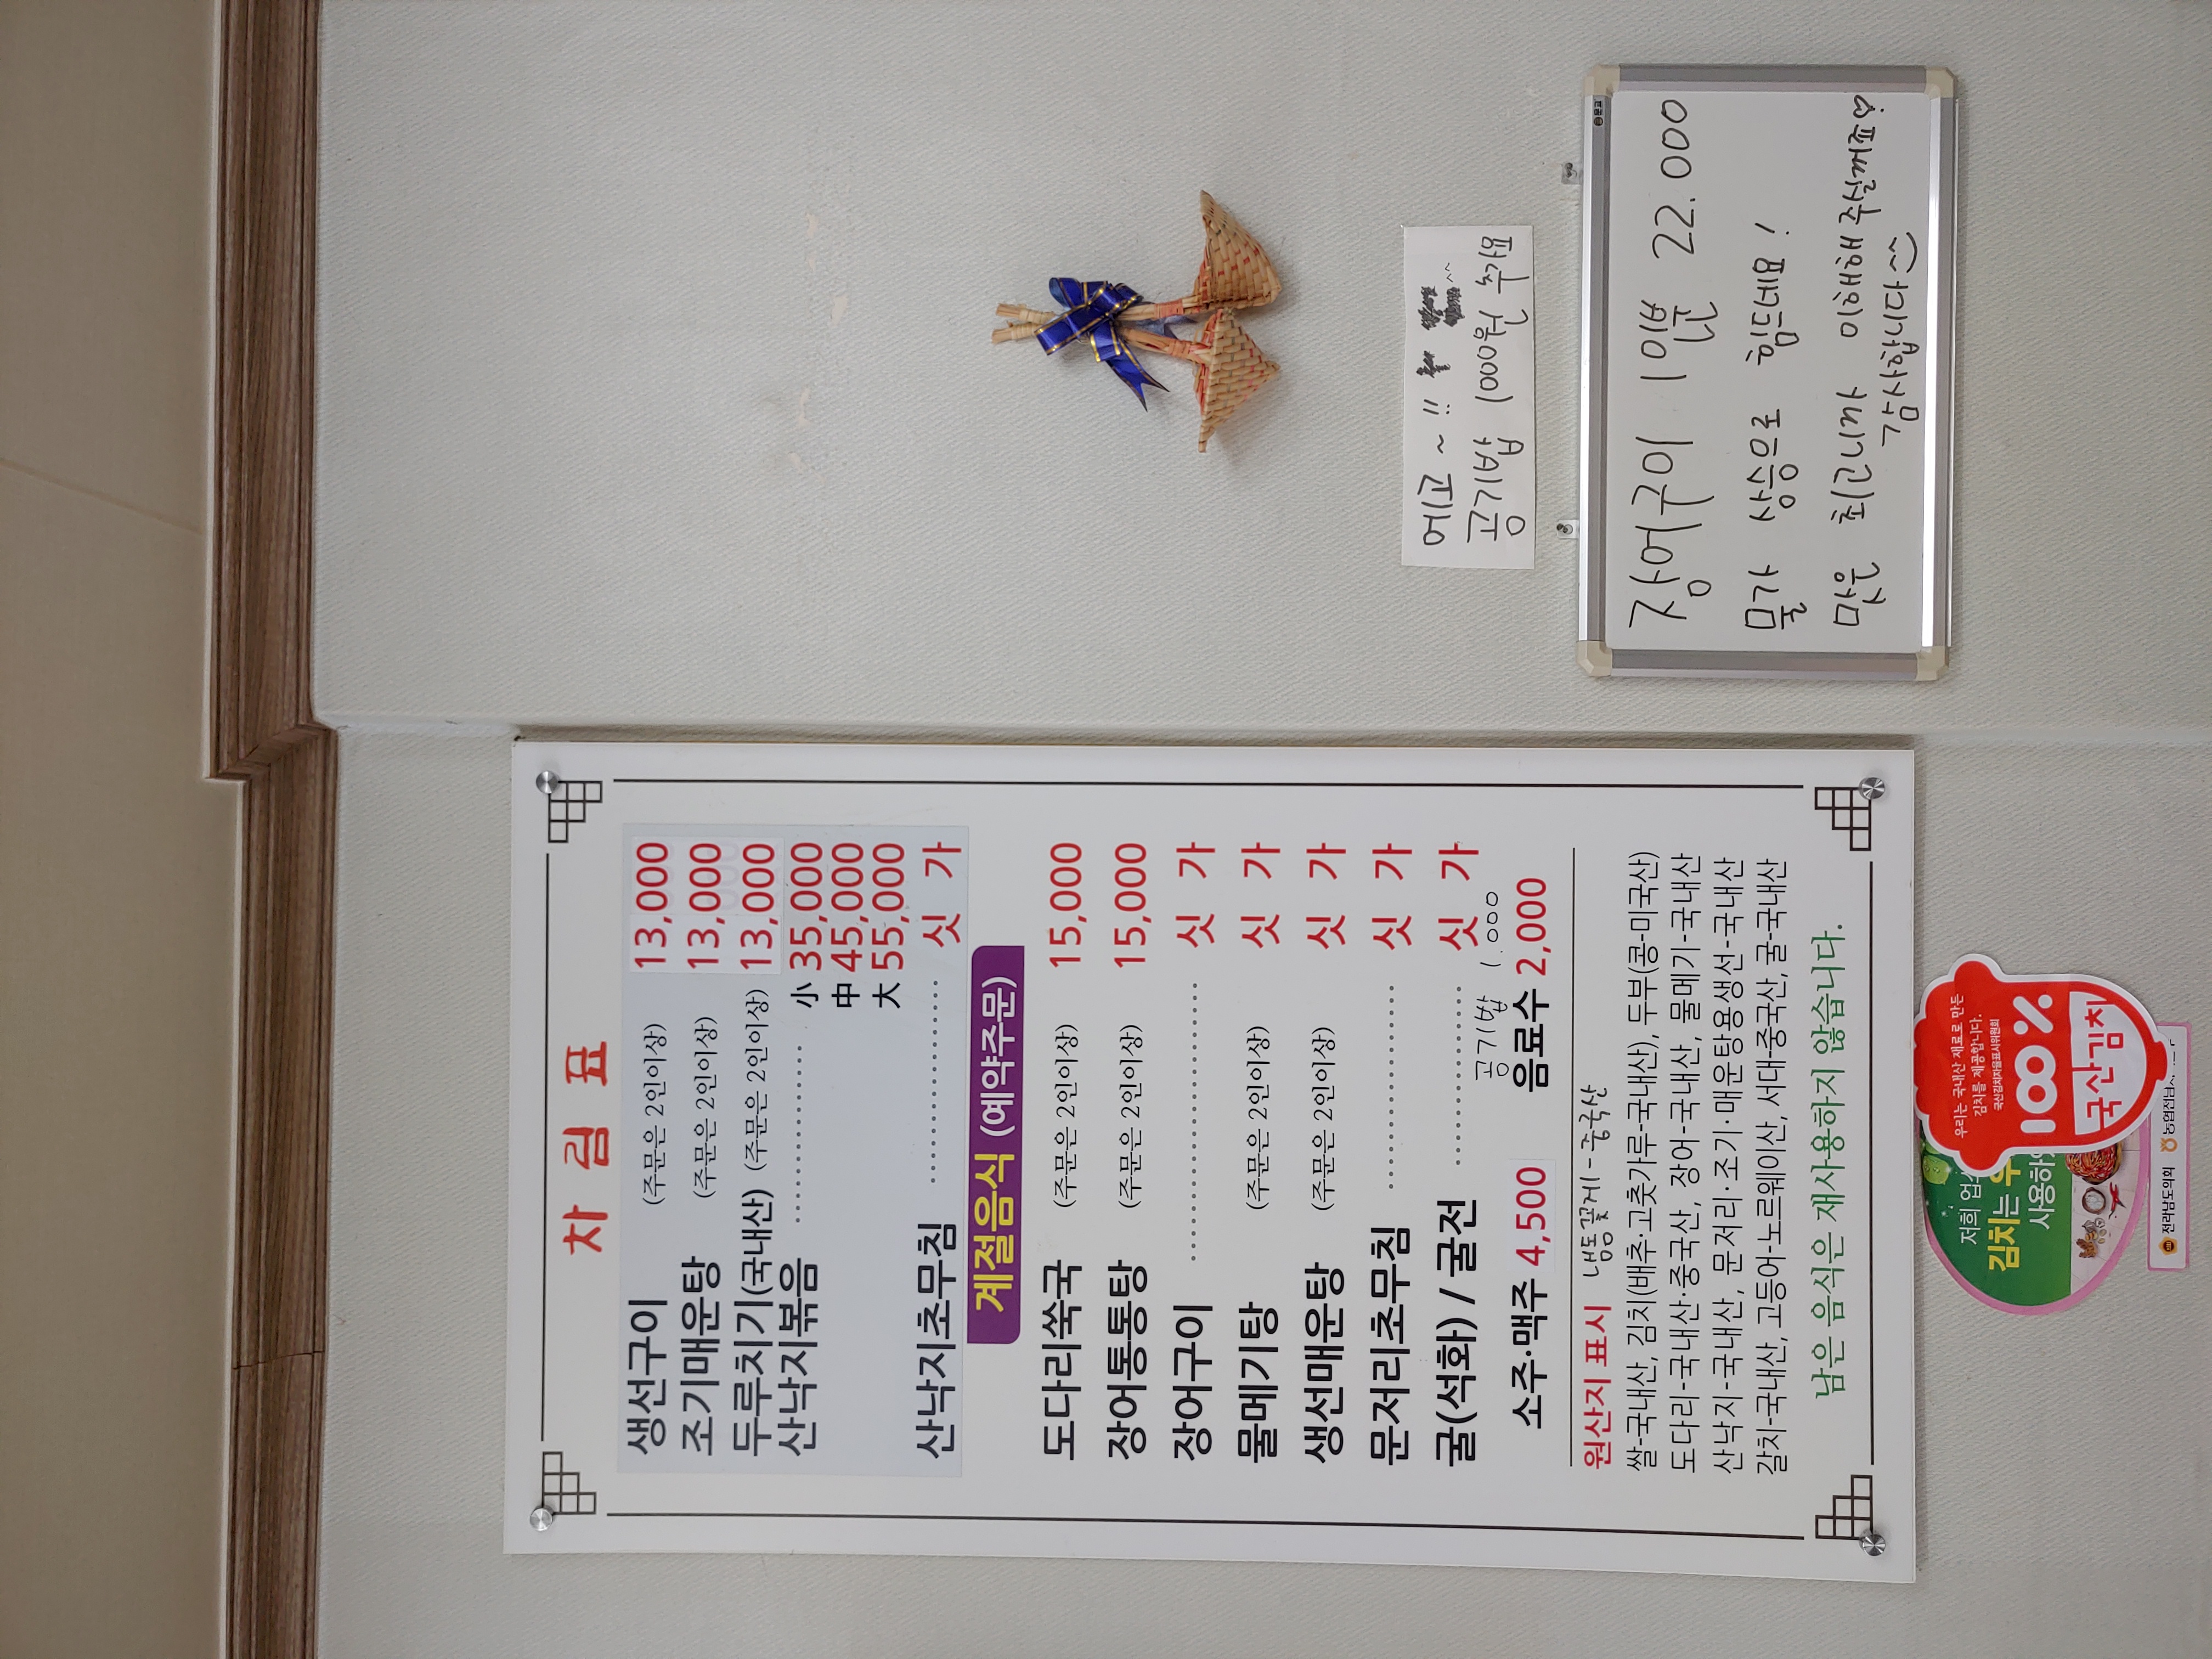 차림표
생선구이 (주문은 2인이상) 13,000
조기매운탕 (주문은 2인이상) 13,000
두루치기(국내산) (주문은 2인이상) 13,000
산낙지볶음 小 35,000
中 45,000
大 55,000
산낙지초무침 싯가
계절음식 (예약주문)
도다리쑥국 (주문은 2인이상) 15,000
장어통통탕 (주문은 2인이상) 15,000
장어구이 싯가
물메기탕 (주문은 2인이상) 싯가
생선매운탕 (주문은 2인이상) 싯가
문저리초무침 싯가
굴(석화) / 굴전 싯가
공기밥 1.000
소주·맥주 4,500 음료수 2,000
원산지 표시 냉동꽃게-중국산
쌀-국내산, 김치(배추·고춧가루-국내산), 두부(콩-미국산)
도다리-국내산·중국산, 장어-국내산, 물메기-국내산
산낙지-국내산, 문저리·조기·매운탕용생선-국내산
갈치-국내산, 고등어-노르웨이산, 서대-중국산, 굴-국내산
남은 음식은 재사용하지 않습니다.
우리는 국내산 재료로 만든
김치를 제공합니다.
국산김치자율표시위원회
100%
국산김치
저희 업
김치는 우
사용하
전라남도의회
에고~!!
^^
공기밥 1000원 추가요
장어구이 1인분 22.000
물가 상승으로 힘드네요!
맛은 최고니까 이해해주실꺼죠?
감사합니다^^